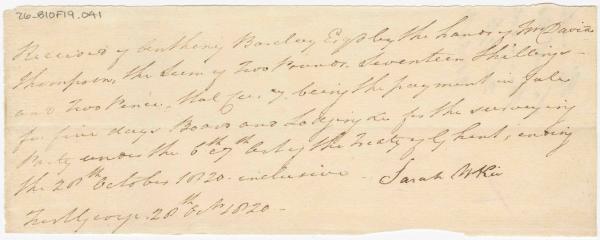 26-B10F19.041
Received of Anthony Barclay Esqr by the hands of Mr David
Thompson, the Sum of Two Pounds Seventeen Shillings
and Two Pence, Hal Cu.cy. being the payment in full
for five days Board and Lodging &c for the surveying
Party under the 6th & 7th Art. of the Treaty of Ghent, ending
the 28th October 1820 inclusive -
Sarah
28th Octr 1820 -